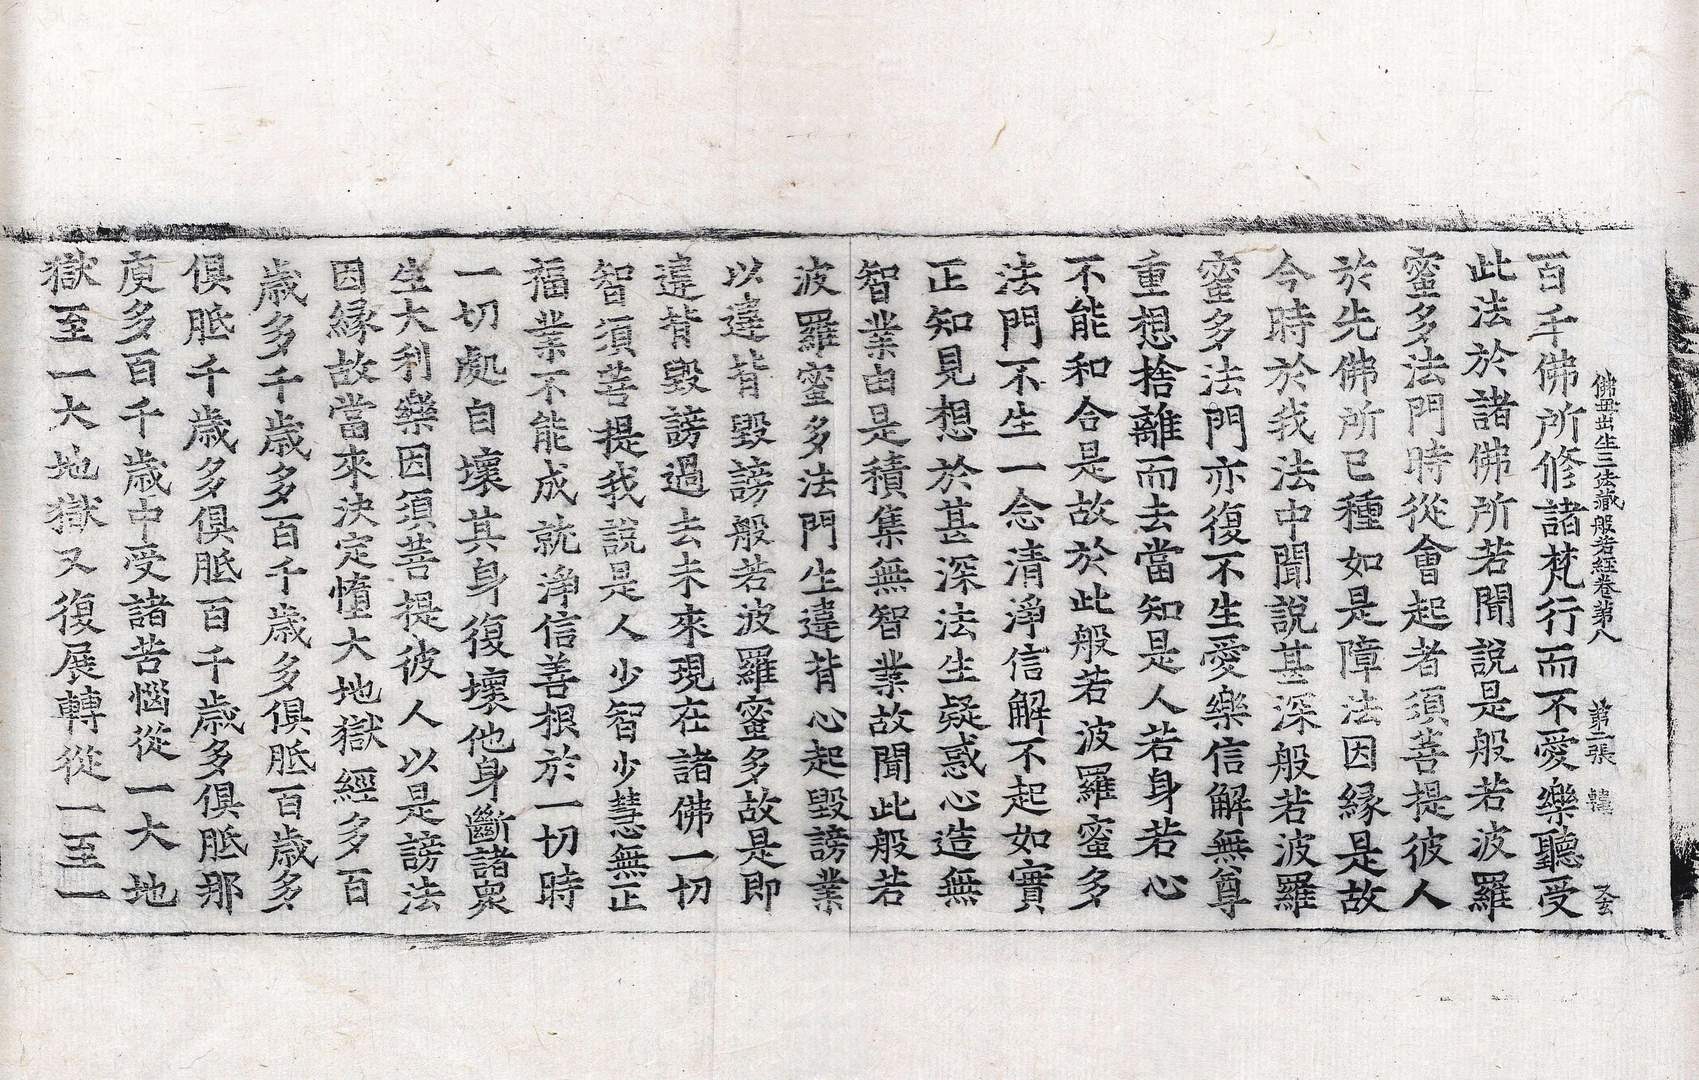 佛毋出生三法藏般若經卷第八 第二張 韓 又玄
百千佛所修諸梵行而不愛樂聽受
此法於諸佛所若聞說是般若波羅
蜜多法門時從會起者須菩提彼人
於先佛所已種如是障法因緣是故
今時於我法中聞說甚深般若波羅
蜜多法門亦復不生愛樂信解無尊
重想捨離而去當知是人若身若心
不能和合是故於此般若波羅蜜多
法門不生一念清淨信解不起如實
正知見想於甚深法生疑惑心造無
智業由是積集無智業故聞此般若
波羅蜜多法門生違背心起毀謗業
以違背毀謗般若波羅蜜多故是即
違背毀謗過去未來現在諸佛一切
智須菩提我說是人少智少慧無正
福業不能成就淨信善根於一切時
一切處自壞其身復壞他身斷諸眾
生大利樂因須菩提彼人以是謗法
因緣故當來決定墮大地獄經多百
歲多千歲多百千歲多俱胝百歲多
俱胝千歲多俱胝百千歲多俱胝那
庾多百千歲中受諸苦惱從一大地
獄至一大地獄又復展轉從一至一